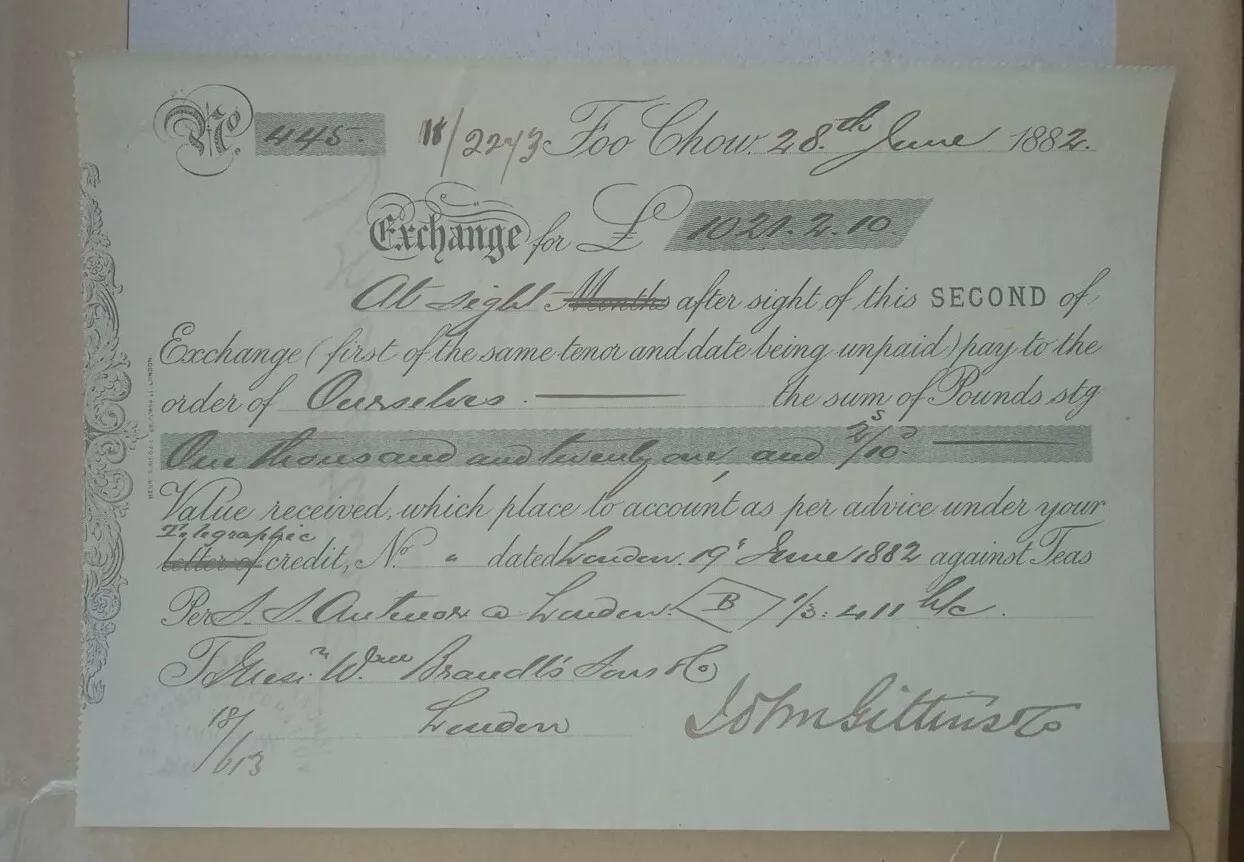 No. 445. 18/2273 Foo Chow. 28th June 1882.
Exchange for £ 1021.2.10
At sight Months after sight of this SECOND of
Exchange (first of the same tenor and date being unpaid) pay to the
order of Ourselves. the sum of Pounds stg
One thousand and twenty one, and 2s/10d
Value received, which place to account as per advice under your
Telegraphic
letter of credit, No. " dated London. 19" June 1882 against Teas
Per S. S. Antenor @ London. B 1/3: 411 h/c.
To Messrs Wm Brandt's Sons & Co
London
John Gittins & Co
18/613